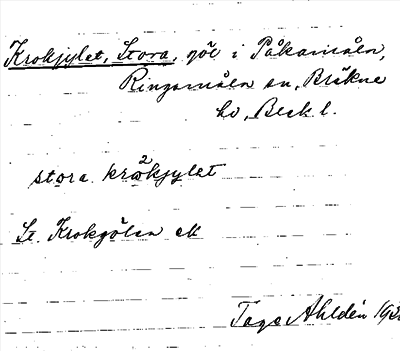 Krokjylet, Stora, göl i Påkamåla,
Ringamåla sn, Bräkne
hd, Blek. l.
stora krå²kjylet
St. Krokgölen ek
Tage Ahldén 193